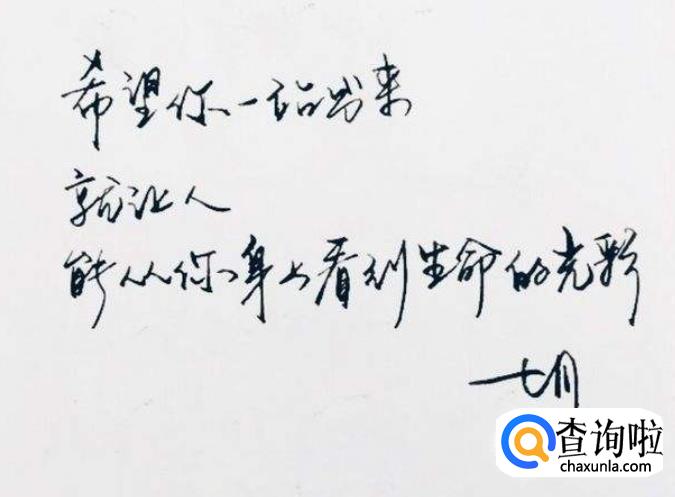 希望你一站出来
就让人
能从你身上看到生命的光彩
七月
查询啦
chaxunla.com